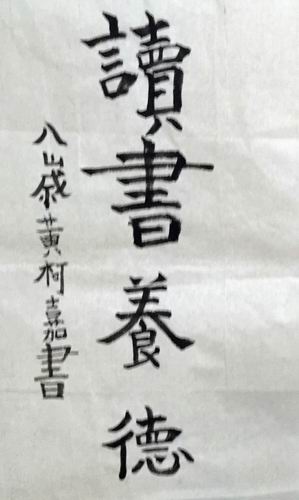 讀書養德
八歲黃柯嘉書